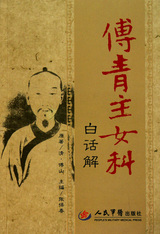 傅青主女科
白话解
原著／清·傅山 主编／张博春
人民军医出版社
PEOPLE'S MILITARY MEDICAL PRESS